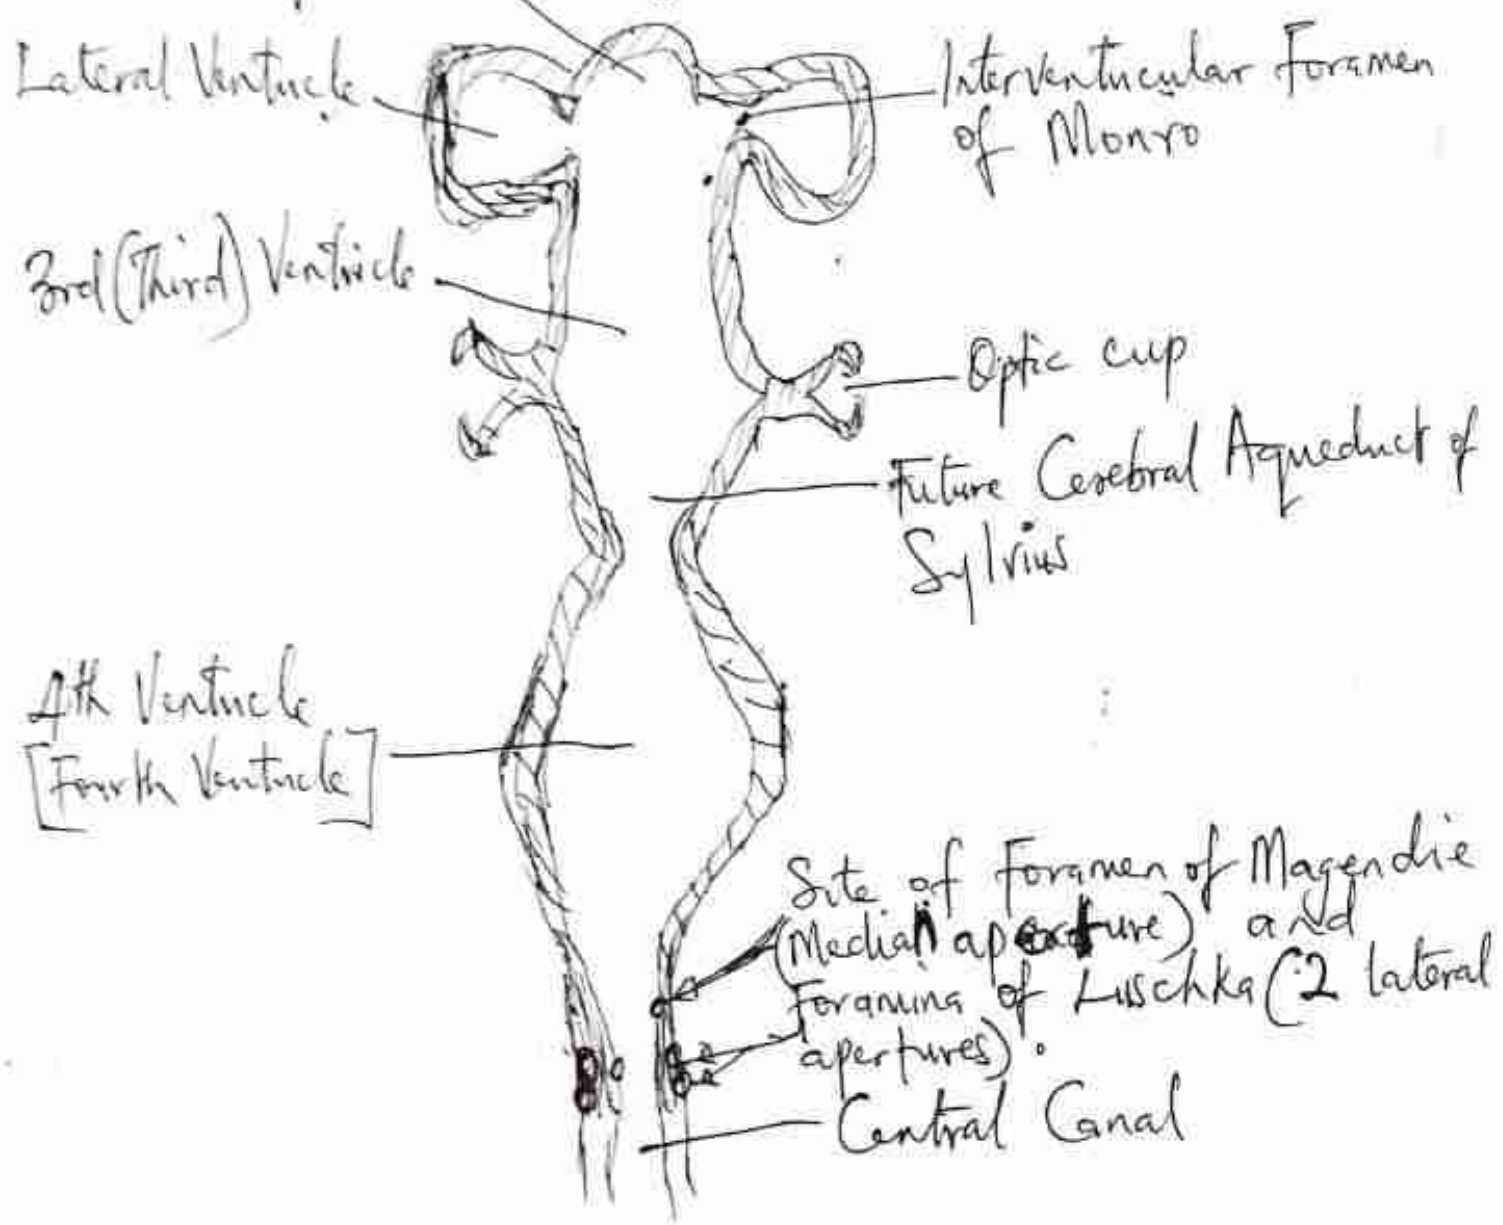 Lateral Ventricle
Interventricular Foramen
of Monro
3rd (Third) Ventricle
Optic cup
Future Cerebral Aqueduct of
Sylvius
4th Ventricle
[Fourth Ventricle]
Site of Foramen of Magendie
(Median aperture) and
Foramina of Luschka (2 lateral
apertures).
Central Canal